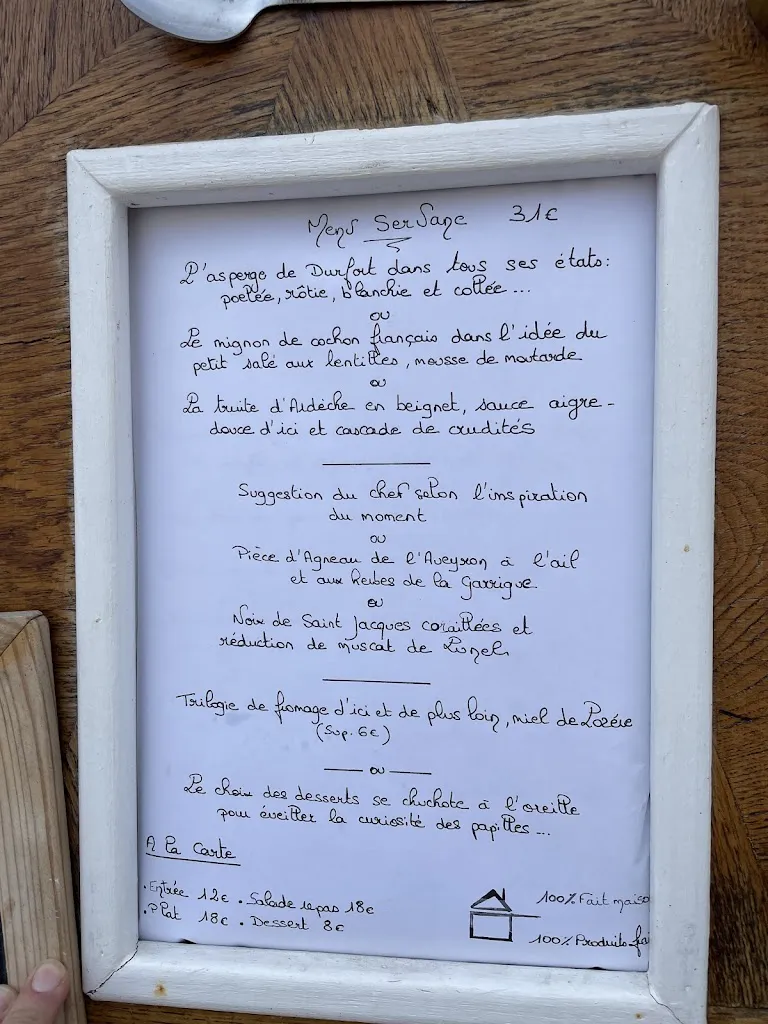 Menu SerVane 31€
L'asperge de Durfort dans tous ses états:
poelée, rôtie, blanchie et collée ...
ou
Le mignon de cochon français dans l'idée du
petit salé aux lentilles, mousse de moutarde
ou
La truite d'Ardèche en beignet, sauce aigre-
douce d'ici et cascade de crudités
Suggestion du chef selon l'inspiration
du moment
ou
Pièce d'Agneau de l'Aveyron à l'ail
et aux herbes de la Garrigue
ou
Noix de Saint Jacques coraillées et
réduction de muscat de Lunel
Trilogie de fromage d'ici et de plus loin, miel de Lozère
(Sup. 6€)
ou
Le choix des desserts se chuchote à l'oreille
pour éveiller la curiosité des papilles ...
A la Carte
• Entrée 12€ • Salade repas 18€
• Plat 18€ • Dessert 8€
100% Fait maiso
100% Produits frai